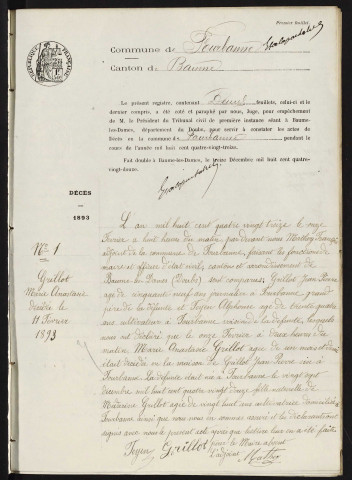 Premier feuillet
Commune de Fourbanne
Canton de Baume
RÉPUBLIQUE FRANÇAISE
Le présent registre, contenant Deux feuillets, celui-ci et le
dernier compris, a été coté et paraphé par nous, Juge, pour empêchement
de M. le Président du Tribunal civil de première instance séant à Baume-
les-Dames, département du Doubs, pour servir à constater les actes de
Décès en la commune de Fourbanne pendant le
cours de l'année mil huit cent quatre-vingt-treize.
Fait double à Baume-les-Dames, le treize Décembre mil huit cent quatre-
vingt-douze.
DÉCÈS
1893
No 1
Grillot
Marie Anastasie
décédée le
11 Février
1893
L'an mil huit cent quatre vingt treize le onze
Février à huit heures du matin par devant nous Mathey François
adjoint de la commune de Fourbanne, faisant les fonctions de
maire et officier d'état civil, canton et arrondissement de
Baume les Dames (Doubs) sont comparus Grillot Jean Pierre
âgé de cinquante neuf ans domicilié à Fourbanne, grand
père de la défunte et
cultivateur à Fourbanne voisin de la défunte, lesquels
nous ont déclaré que le onze Février à deux heures du
matin Marie Anastasie Grillot âgée de un mois et demi
était décédée en la maison de Grillot Jean Pierre sise à
Fourbanne. La défunte était née à Fourbanne le vingt sept
décembre mil huit cent quatre vingt douze fille naturelle de
Grillot âgée de vingt huit ans domiciliée à
Fourbanne ainsi que nous nous en sommes assuré et les déclarants ont
signé avec nous le présent acte après que lecture leur en a été faite.
Grillot Pour le Maire absent
l'adjoint Mathey